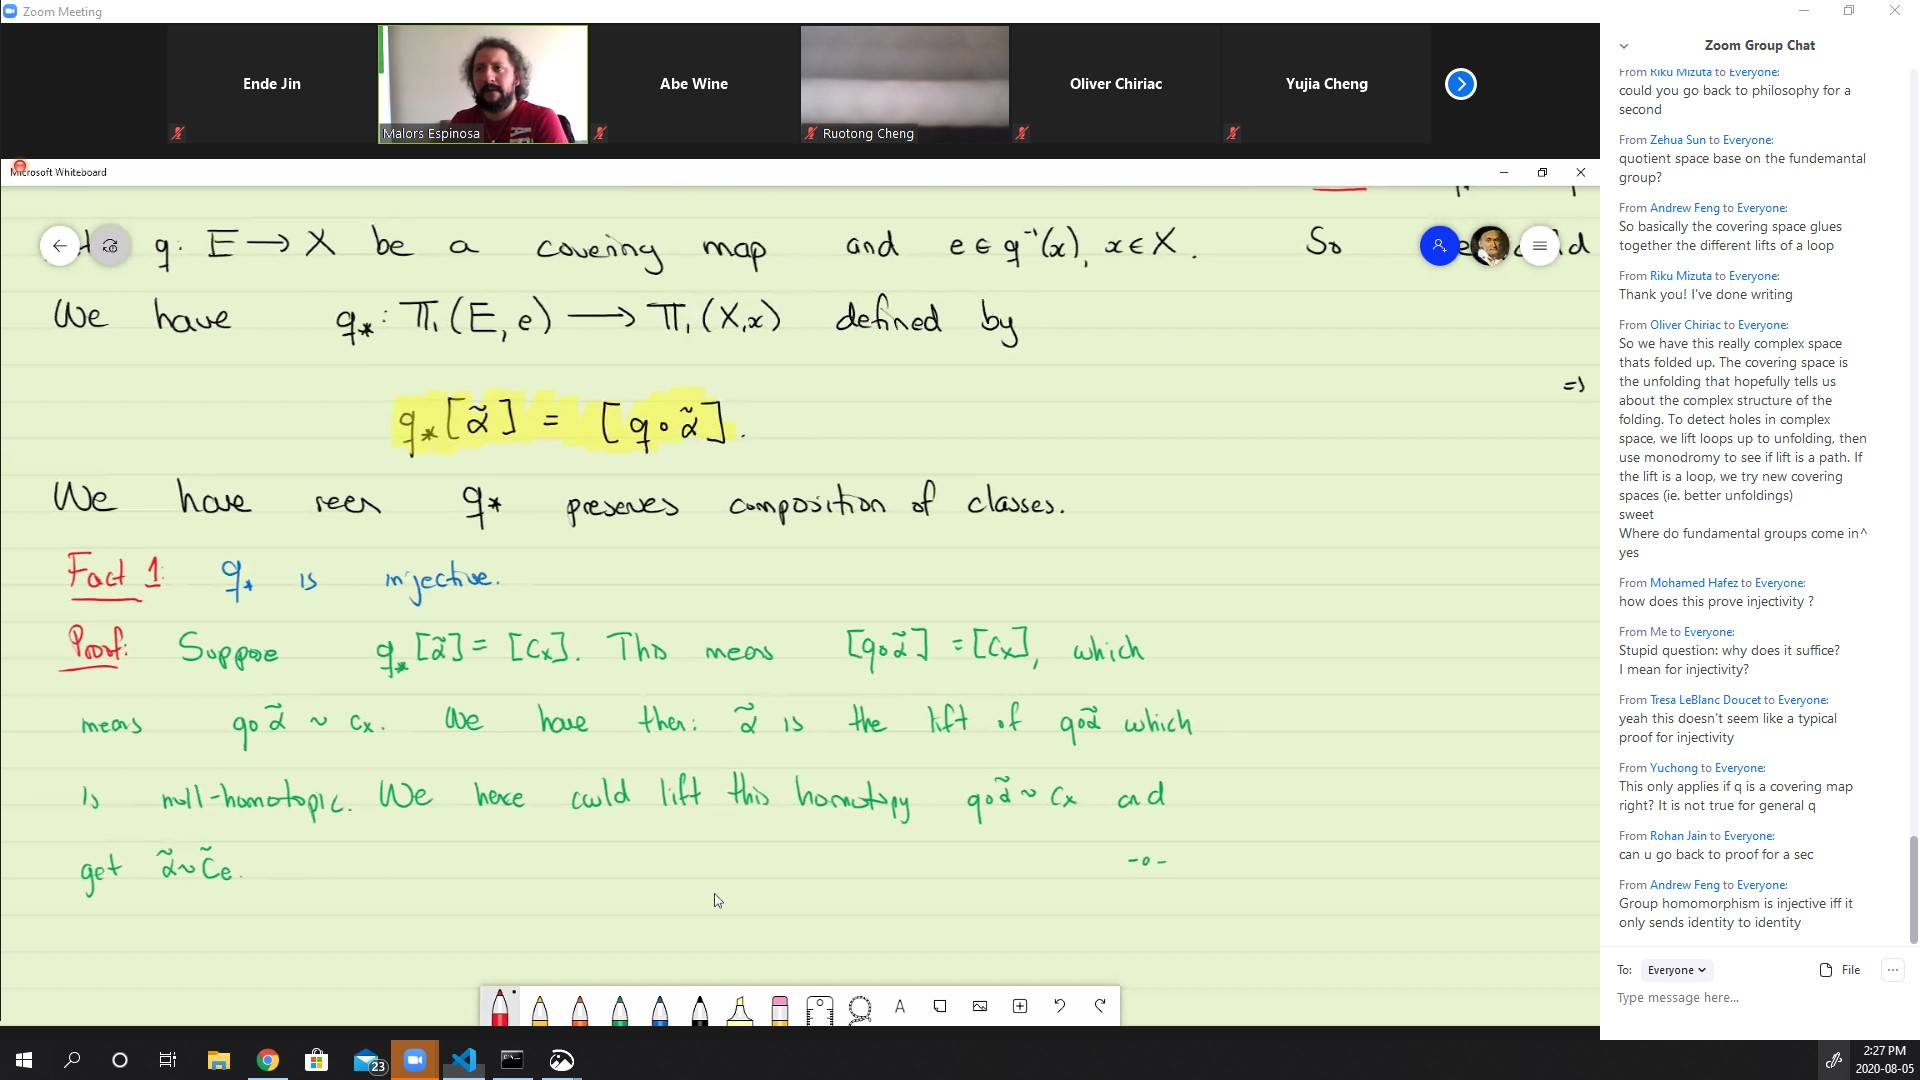 Zoom Meeting
Ende Jin
Malors Espinosa
Abe Wine
Ruotong Cheng
Oliver Chiriac
Yujia Cheng
Microsoft Whiteboard
q: E → X be a covering map and e ∈ q⁻¹(x), x ∈ X. So
We have q⁎: π₁(E, e) → π₁(X, x) defined by
=>
q⁎[α̃] = [q∘α̃].
We have seen q⁎ preserves composition of classes.
Fact 1: q⁎ is injective.
Proof: Suppose q⁎[α̃] = [Cx]. This means [q∘α̃] = [Cx], which
means q∘α̃ ~ Cx. We have then: α̃ is the lift of q∘α̃ which
is null-homotopic. We hence could lift this homotopy q∘α̃ ~ Cx and
get α̃ ~ C̃e. -o-
Zoom Group Chat
From Riku Mizuta to Everyone:
could you go back to philosophy for a
second
From Zehua Sun to Everyone:
quotient space base on the fundemantal
group?
From Andrew Feng to Everyone:
So basically the covering space glues
together the different lifts of a loop
From Riku Mizuta to Everyone:
Thank you! I've done writing
From Oliver Chiriac to Everyone:
So we have this really complex space
thats folded up. The covering space is
the unfolding that hopefully tells us
about the complex structure of the
folding. To detect holes in complex
space, we lift loops up to unfolding, then
use monodromy to see if lift is a path. If
the lift is a loop, we try new covering
spaces (ie. better unfoldings)
sweet
Where do fundamental groups come in^
yes
From Mohamed Hafez to Everyone:
how does this prove injectivity ?
From Me to Everyone:
Stupid question: why does it suffice?
I mean for injectivity?
From Tresa LeBlanc Doucet to Everyone:
yeah this doesn't seem like a typical
proof for injectivity
From Yuchong to Everyone:
This only applies if q is a covering map
right? It is not true for general q
From Rohan Jain to Everyone:
can u go back to proof for a sec
From Andrew Feng to Everyone:
Group homomorphism is injective iff it
only sends identity to identity
To: Everyone File
Type message here...
23
2:27 PM
2020-08-05